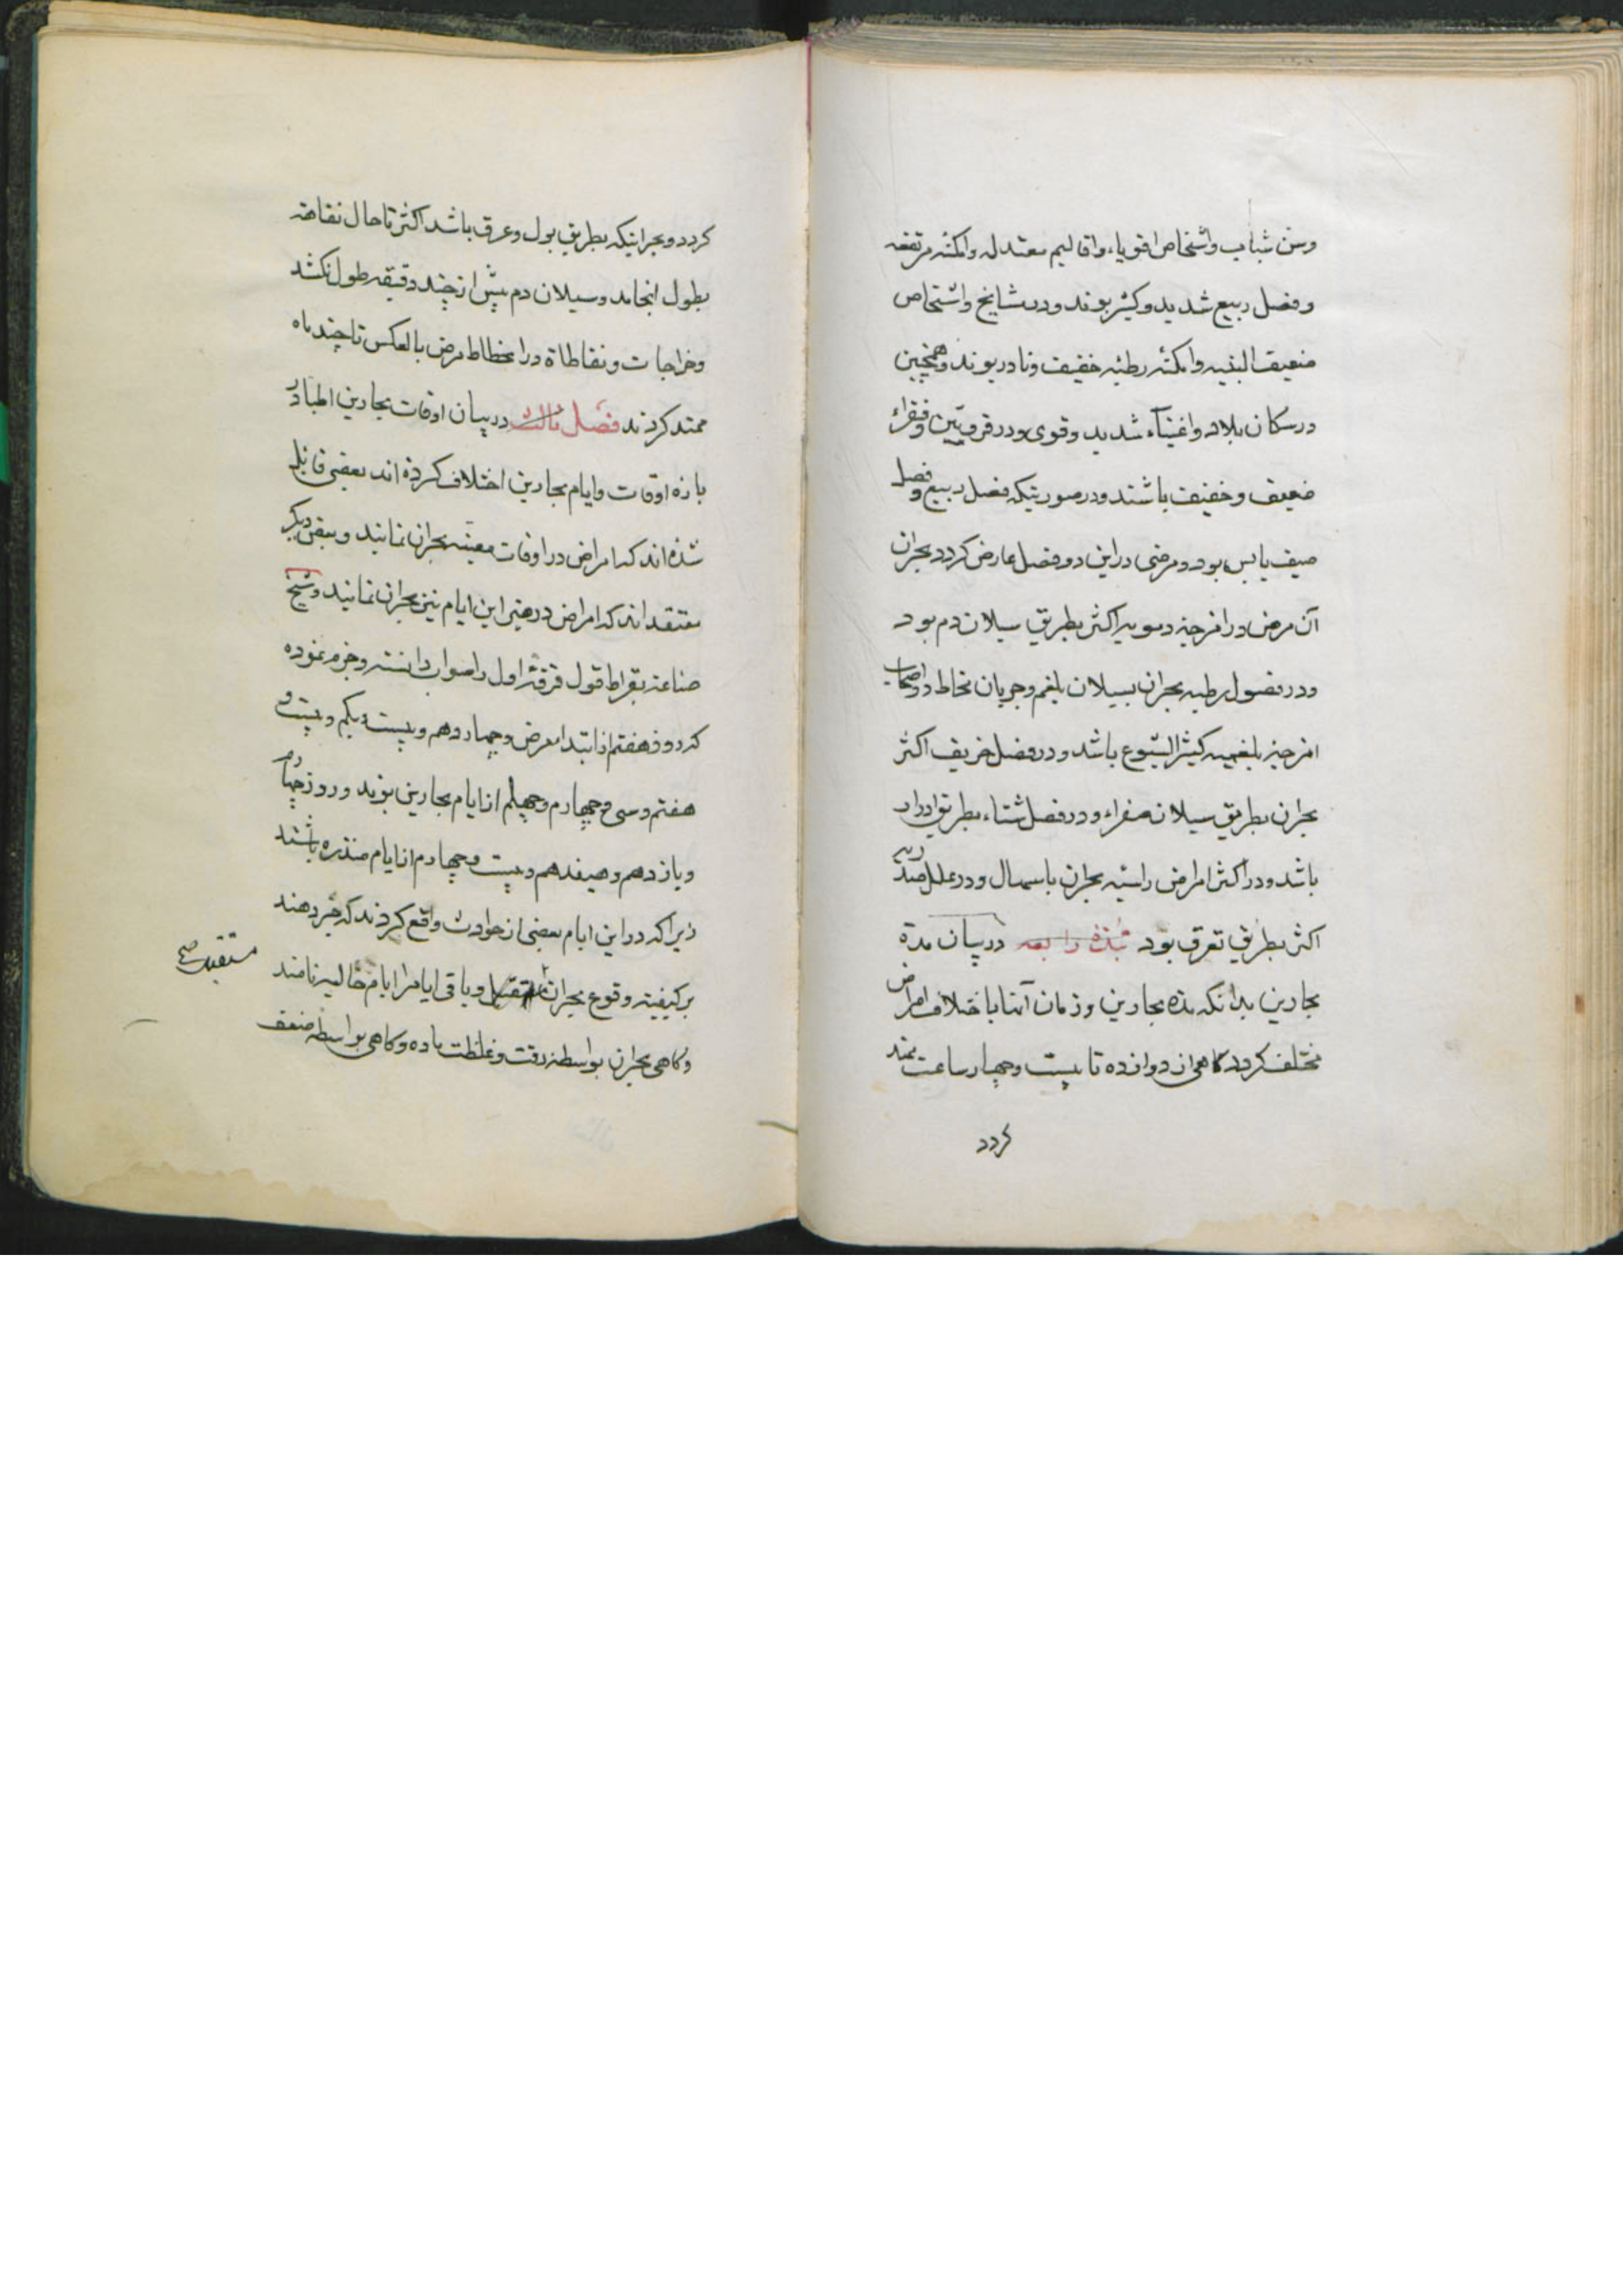 وسن شباب واشخاص اقویاء واقالیم معتدله وامکنه مرتفعه
وفصل ربیع شدید وکثیر بوند ودر مشایخ واشخاص
ضعیف البنیه وامکنه رطبه خفیف ونادر بوند وهمچنین
در سکان بلاد واغنیاء شدید وقوی ودر قرویین وفقراء
ضعیف وخفیف باشند ودر صورتیکه فصل ربیع وفصل
صیف یابس بود ومرضی در این دو فصل عارض کردد بحران
آن مرض در امزجه دمویه اکثر بطریق سیلان دم بود
ودر فصول رطبه بحران بسیلان بلغم وجریان مخاط در اصحاب
امزجه بلغمیه کثیر الشیوع باشد ودر فصل خریف اکثر
بحران بطریق سیلان صفراء ودر فصل شتاء بطریق ادرار
باشد ودر اکثر امراض راسیه بحران باسهال ودر علل صدریه
اکثر بطریق تعرق بود نبذه رابعه در بیان مدة
بحارین بدانکه مدة بحارین وزمان آنها باختلاف امراض
مختلف کردد کاهی از دوازده تا بیست وچهار ساعت ممتد
کردد
کردد وبحرانیکه بطریق بول وعرق باشد اکثر تا حال نقاهة
بطول انجامد وسیلان دم بیش از چند دقیقه طول نکشد
وخراجات ونفاطاة در انحطاط مرض بالعکس تا چند ماه
ممتد کردند فصل ثالث در بیان اوقات بحارین اطباء در
باره اوقات وایام بحارین اختلاف کرده اند بعضی قائل
شده اند که امراض در اوقات معینه بحران نمایند وبعضی دیکر
معتقد اند که امراض در غیر این ایام نیز بحران نمایند وشیخ
صناعة بقراط قول فرقه اول را صواب دانسته وجزم نموده
که روز هفتم از ابتداء مرض وچهاردهم وبیست ویکم وبیست و
هفتم وسی وچهارم وچهلم از ایام بحارین بوند وروز چهارم
ویازدهم وهیفدهم وبیست وچهارم از ایام منذره باشند
زیرا که در این ایام بعضی از حوادث واقع کردند که خبر دهند
بر کیفیة وقوع بحران مستقبل وباقی ایام را ایام خالیه نامند
وکاهی بحران بواسطه رقت وغلظت ماده وکاهی بواسطه ضعف
مستقبل صح